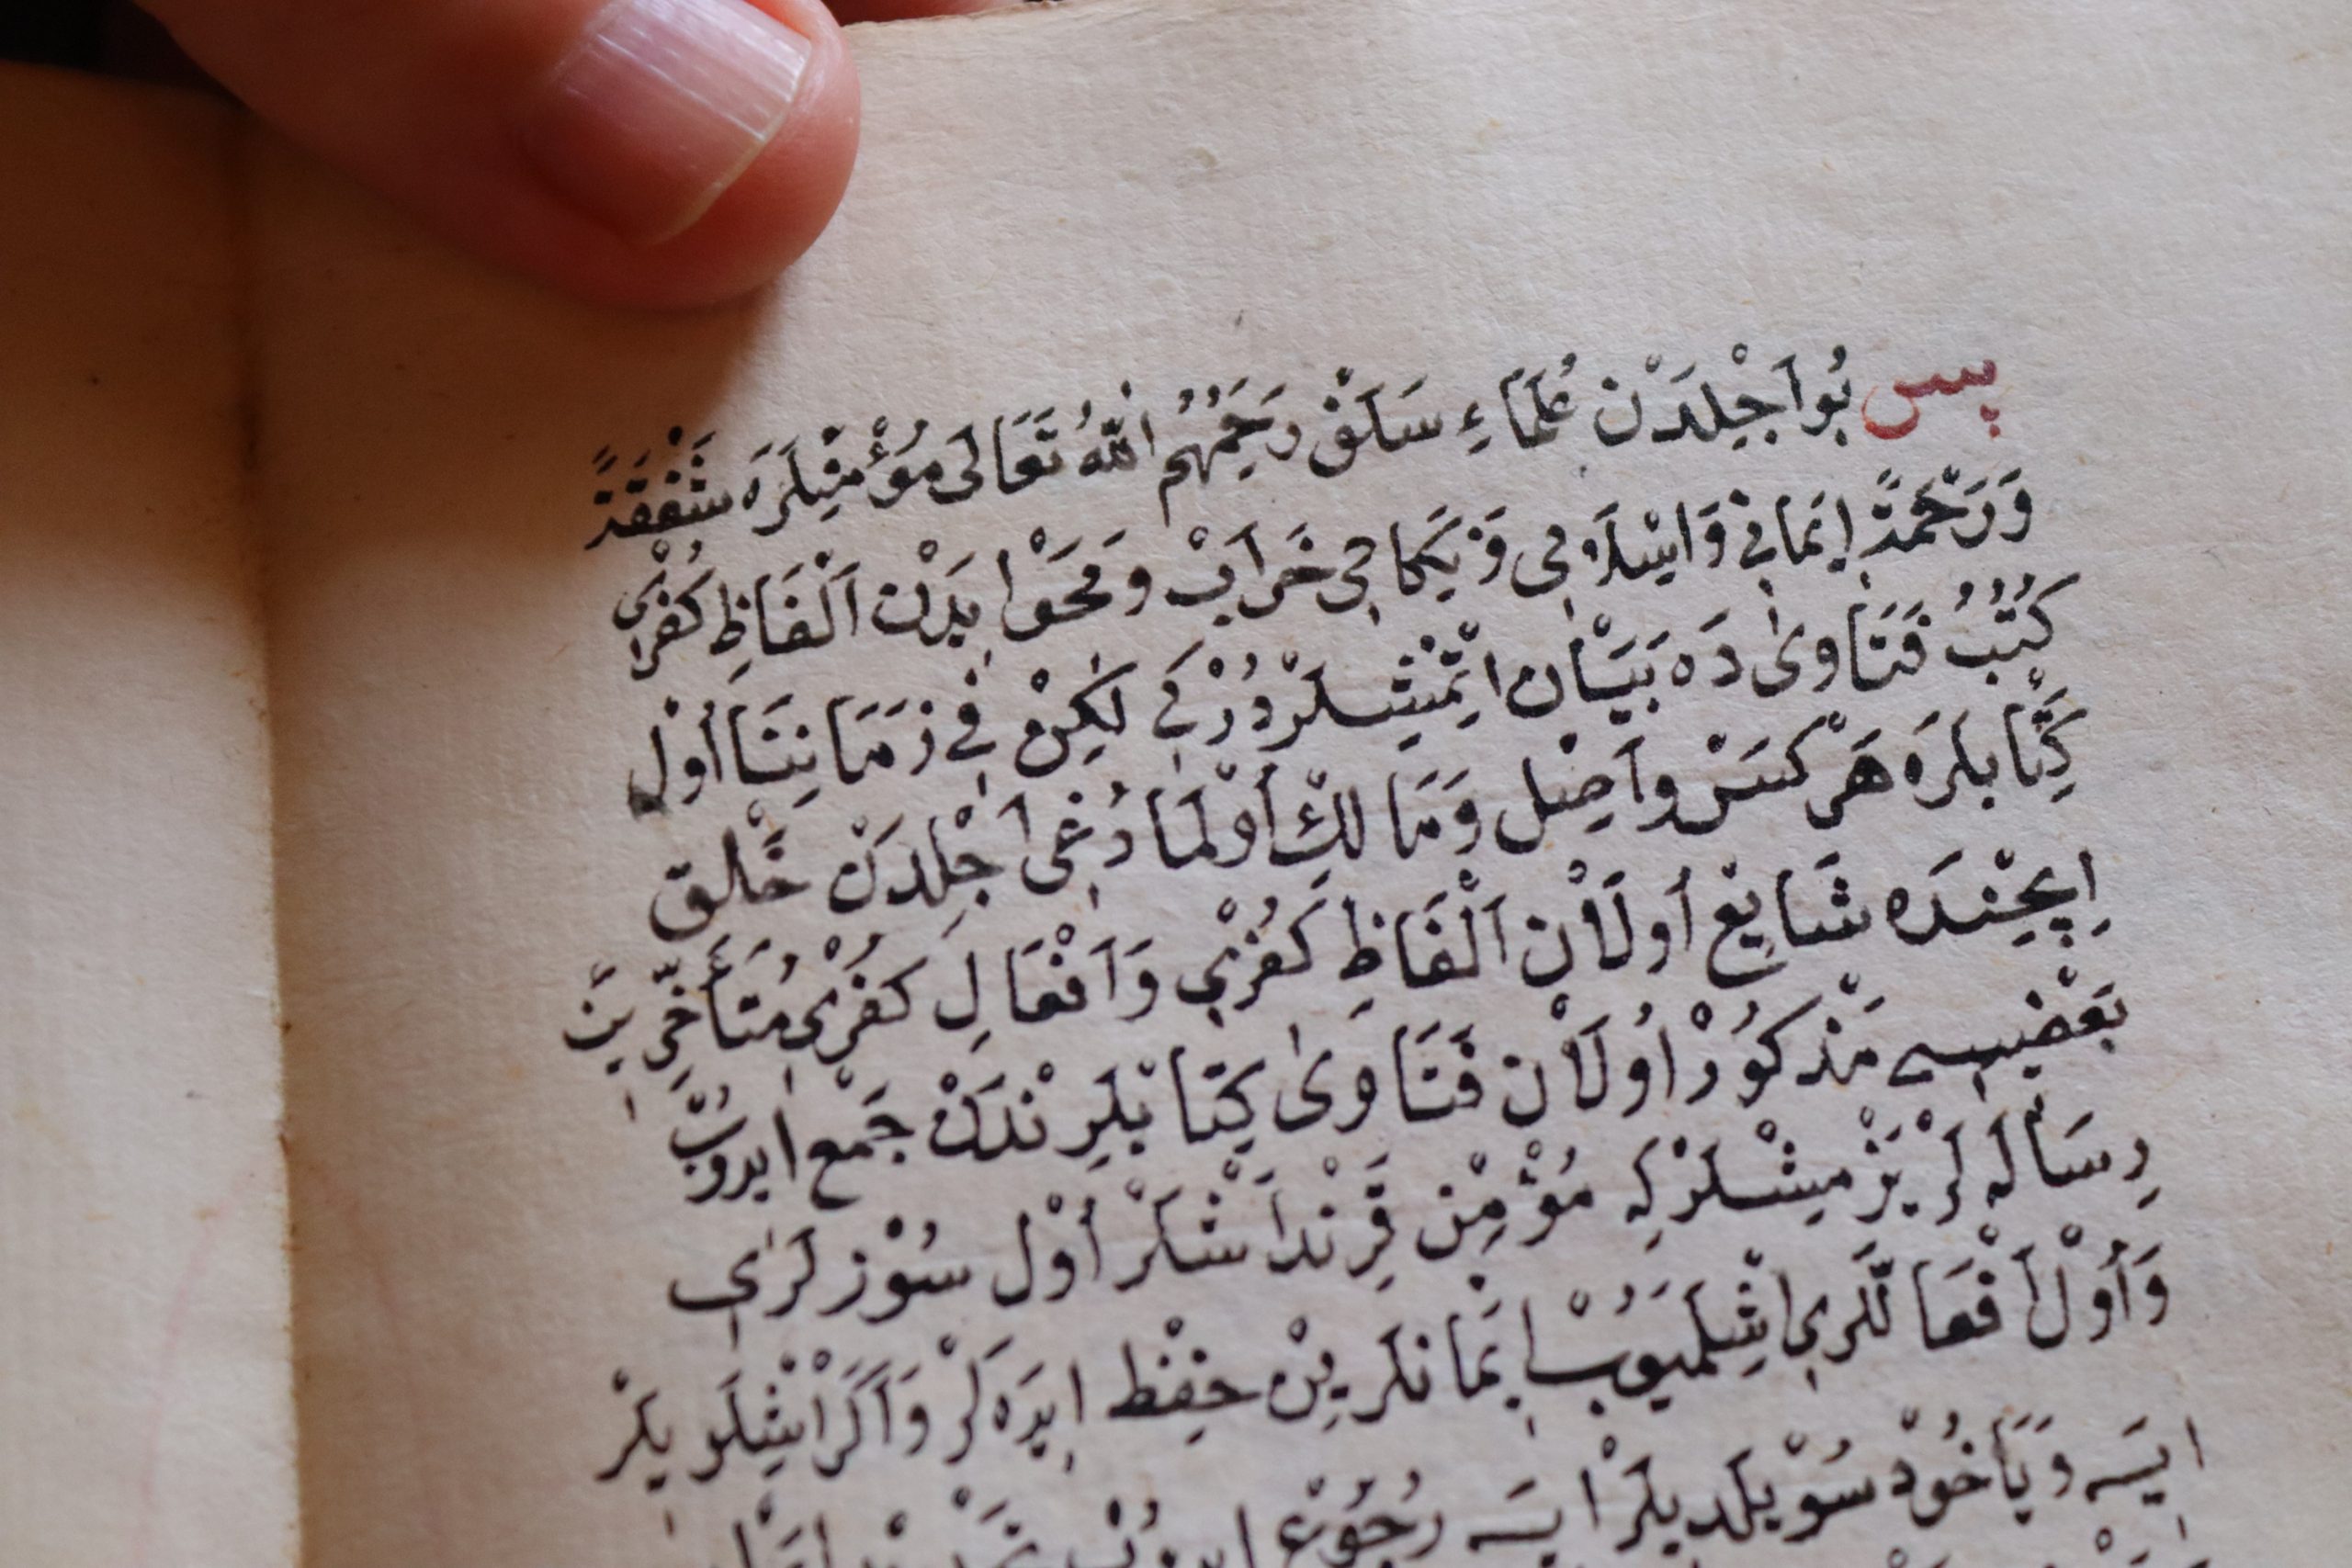 پس بُو اَجْلِدَنْ عُلَمَاءِ سَلَفْ رَحِمَهُمُ اللّٰهُ تَعَالَى مُؤْمِنْلَرَه شَفْقَةً
وَرَحْمَةً اِيمَانِي وَاِسْلَامِى وَنِكَاحِى خَرَابْ وَمَحَوْ اِيدَنْ اَلْفَاظِ كُفْرِى
كُتُبُ فَتَاوٰى دَه بَيَانْ اِتْمِيشْلَرْدُرْ كِه لٰكِنْ فِى زَمَانِنَا اُولْ
كِتَابلَرَه هَرْ كَسْ وَاصِلْ وَمَالِكْ اُولْمَادُغِى اَجْلِدَنْ خَلْق
اِيچِنْدَه شَايِعْ اُولَانْ اَلْفَاظِ كُفْرِى وَاَفْعَالِ كُفْرِى مُتَأَخِّرِينَ
بَعْضِيسِى مَذْكُورْ اُولَانْ فَتَاوٰى كِتَابْلَرِنْدَنْ جَمْع اِيدُوبْ
رِسَالَه لَرْ يَزْمِيشْلَرْ كِه مُؤْمِنْ قَرِنْدَاشْلَرْ اُولْ سُوزْلَرِى
وَاُولْ اَفْعَالْلَرِى اِشْلَمَيُوبْ اِيمَانْلَرِينْ حِفِظْ اِيدَه لَرْ وَاَكَرْ اِيشْلَديلَرْ
ايسَه وَيَاخُودْ سُويْلَديلَرْ ايسَه رُجُوعْ ايدُوبْ